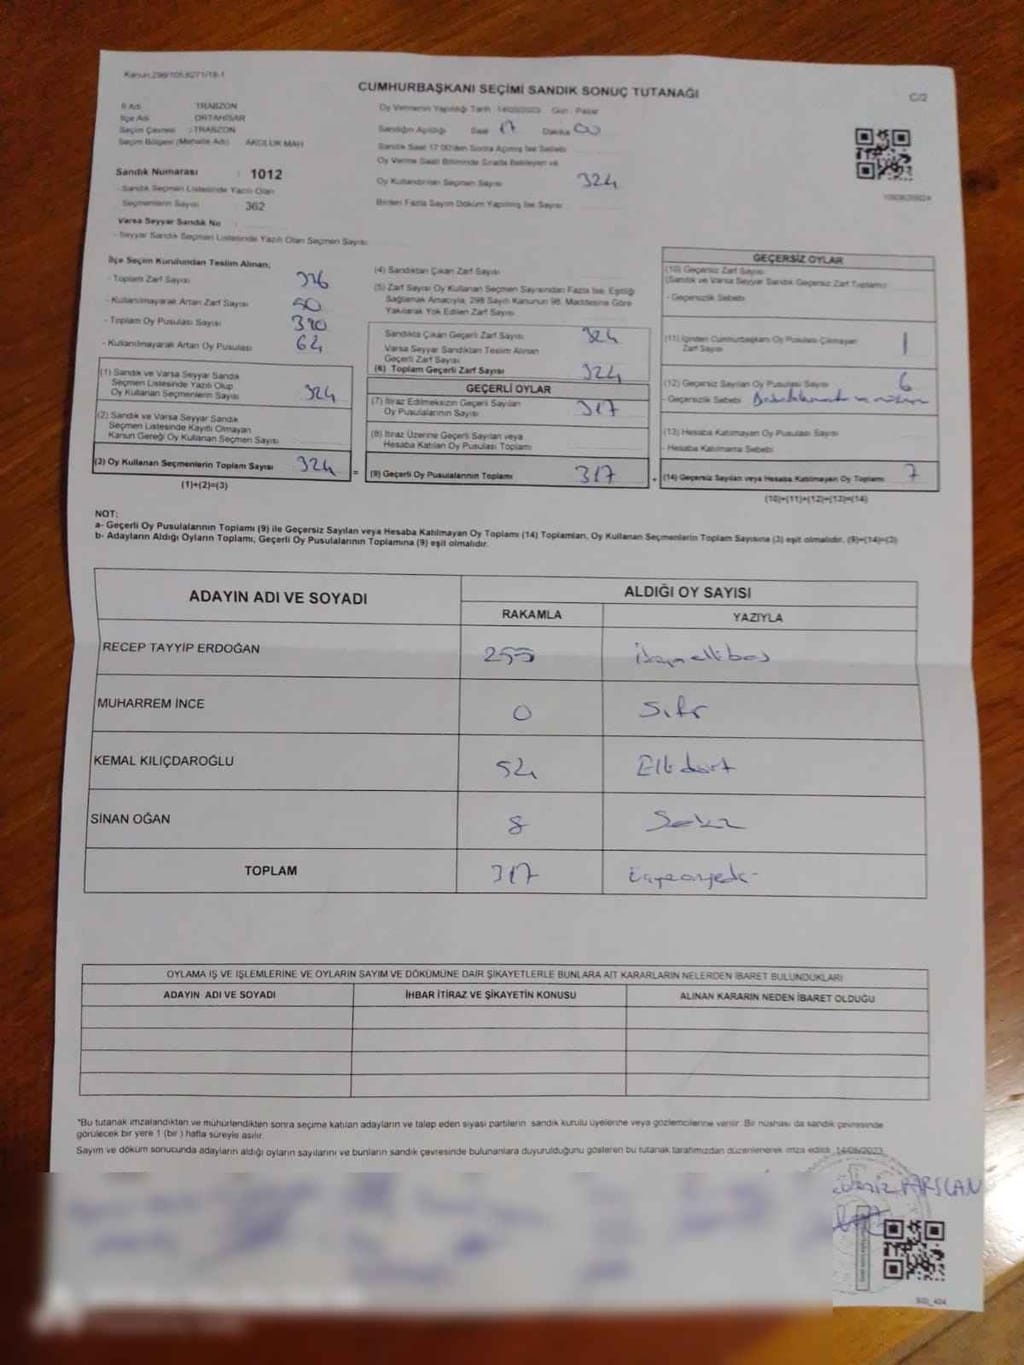 Kanun:298/105,6271/18-1
CUMHURBAŞKANI SEÇİMİ SANDIK SONUÇ TUTANAĞI
C/2
İl Adı : TRABZON
İlçe Adı : ORTAHİSAR
Seçim Çevresi : TRABZON
Seçim Bölgesi (Mahalle Adı) : AKOLUK MAH
Sandık Numarası : 1012
- Sandık Seçmen Listesinde Yazılı Olan
Seçmenlerin Sayısı : 362
Varsa Seyyar Sandık No :
- Seyyar Sandık Seçmen Listesinde Yazılı Olan Seçmen Sayısı:
Oy Vermenin Yapıldığı Tarih : 14/05/2023 Gün : Pazar
Sandığın Açıldığı Saat 17 Dakika 00
Sandık Saat 17.00'den Sonra Açılmış İse Sebebi
Oy Verme Saati Bitiminde Sırada Bekleyen ve
Oy Kullandırılan Seçmen Sayısı 324
Birden Fazla Sayım Döküm Yapılmış İse Sayısı
İlçe Seçim Kurulundan Teslim Alınan;
- Toplam Zarf Sayısı
- Kullanılmayarak Artan Zarf Sayısı 50
- Toplam Oy Pusulası Sayısı 390
- Kullanılmayarak Artan Oy Pusulası 64
(1) Sandık ve Varsa Seyyar Sandık
Seçmen Listesinde Yazılı Olup
Oy Kullanan Seçmenlerin Sayısı 324
(2) Sandık ve Varsa Seyyar Sandık
Seçmen Listesinde Kayıtlı Olmayan
Kanun Gereği Oy Kullanan Seçmen Sayısı
(3) Oy Kullanan Seçmenlerin Toplam Sayısı 324 =
(1)+(2)=(3)
(4) Sandıktan Çıkan Zarf Sayısı
(5) Zarf Sayısı Oy Kullanan Seçmen Sayısından Fazla İse, Eşitliği
Sağlamak Amacıyla, 298 Sayılı Kanunun 98. Maddesine Göre
Yakılarak Yok Edilen Zarf Sayısı
Sandıkta Çıkan Geçerli Zarf Sayısı 324
Varsa Seyyar Sandıktan Teslim Alınan
Geçerli Zarf Sayısı
(6) Toplam Geçerli Zarf Sayısı 324
GEÇERLİ OYLAR
(7) İtiraz Edilmeksizin Geçerli Sayılan
Oy Pusulalarının Sayısı 317
(8) İtiraz Üzerine Geçerli Sayılan veya
Hesaba Katılan Oy Pusulası Toplamı
(9) Geçerli Oy Pusulalarının Toplamı 317 +
GEÇERSİZ OYLAR
(10) Geçersiz Zarf Sayısı
(Sandık ve Varsa Seyyar Sandık Geçersiz Zarf Toplamı)
- Geçersizlik Sebebi
(11) İçinden Cumhurbaşkanı Oy Pusulası Çıkmayan
Zarf Sayısı 1
(12) Geçersiz Sayılan Oy Pusulası Sayısı 6
- Geçersizlik Sebebi
(13) Hesaba Katılmayan Oy Pusulası Sayısı
- Hesaba Katılmama Sebebi
(14) Geçersiz Sayılan veya Hesaba Katılmayan Oy Toplamı 7
(10)+(11)+(12)+(13)=(14)
NOT:
a- Geçerli Oy Pusulalarının Toplamı (9) ile Geçersiz Sayılan veya Hesaba Katılmayan Oy Toplamı (14) Toplamları, Oy Kullanan Seçmenlerin Toplam Sayısına (3) eşit olmalıdır. (9)+(14)=(3)
b- Adayların Aldığı Oyların Toplamı, Geçerli Oy Pusulalarının Toplamına (9) eşit olmalıdır.
ADAYIN ADI VE SOYADI
ALDIĞI OY SAYISI
RAKAMLA YAZIYLA
RECEP TAYYİP ERDOĞAN 255 ikiyüzellibeş
MUHARREM İNCE 0 Sıfır
KEMAL KILIÇDAROĞLU 54 Ellidört
SİNAN OĞAN 8 Sekiz
TOPLAM 317 üçyüzonyedi
OYLAMA İŞ VE İŞLEMLERİNE VE OYLARIN SAYIM VE DÖKÜMÜNE DAİR ŞİKAYETLERLE BUNLARA AİT KARARLARIN NELERDEN İBARET BULUNDUKLARI
ADAYIN ADI VE SOYADI İHBAR İTİRAZ VE ŞİKAYETİN KONUSU ALINAN KARARIN NEDEN İBARET OLDUĞU
*Bu tutanak imzalandıktan ve mühürlendikten sonra seçime katılan adayların ve talep eden siyasi partilerin sandık kurulu üyelerine veya gözlemcilerine verilir. Bir nüshası da sandık çevresinde
görülecek bir yere 1 (bir ) hafta süreyle asılır.
Sayım ve döküm sonucunda adayların aldığı oyların sayılarını ve bunların sandık çevresinde bulunanlara duyurulduğunu gösteren bu tutanak tarafımızdan düzenlenerek imza edildi. 14/05/2023
ARSLAN